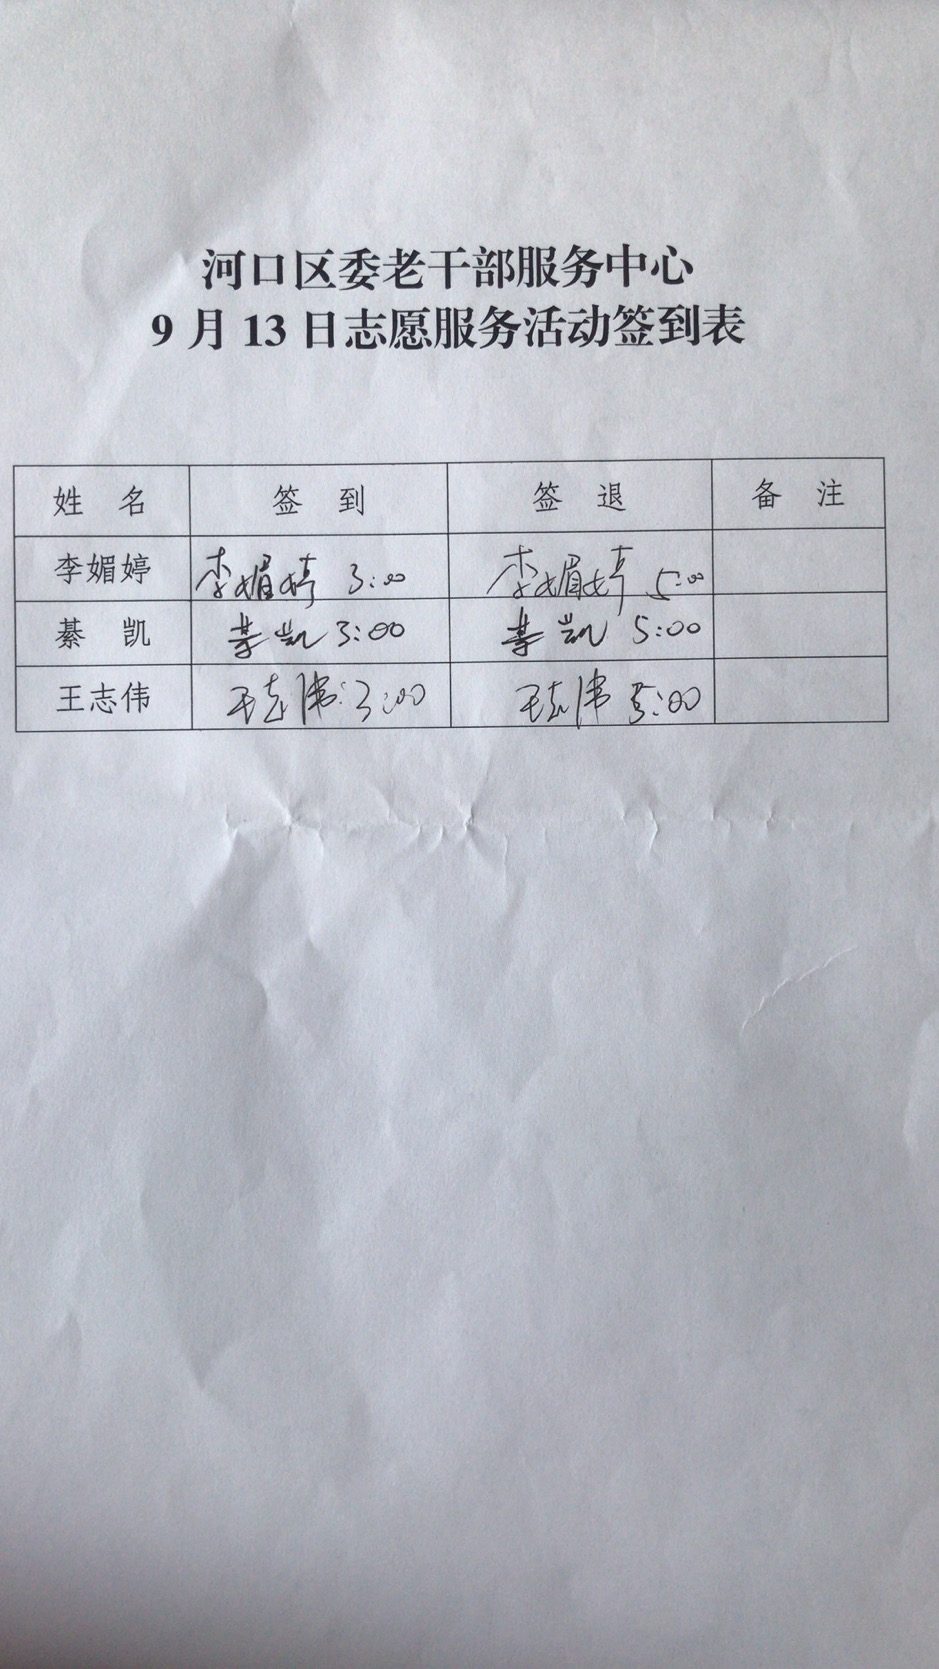 河口区委老干部服务中心
9月13日志愿服务活动签到表
姓 名 签 到 签 退 备 注
李媚婷 李媚婷 3:00 李媚婷 5:00
綦 凯 綦凯 3:00 綦凯 5:00
王志伟 王志伟:3:00 王志伟 5:00